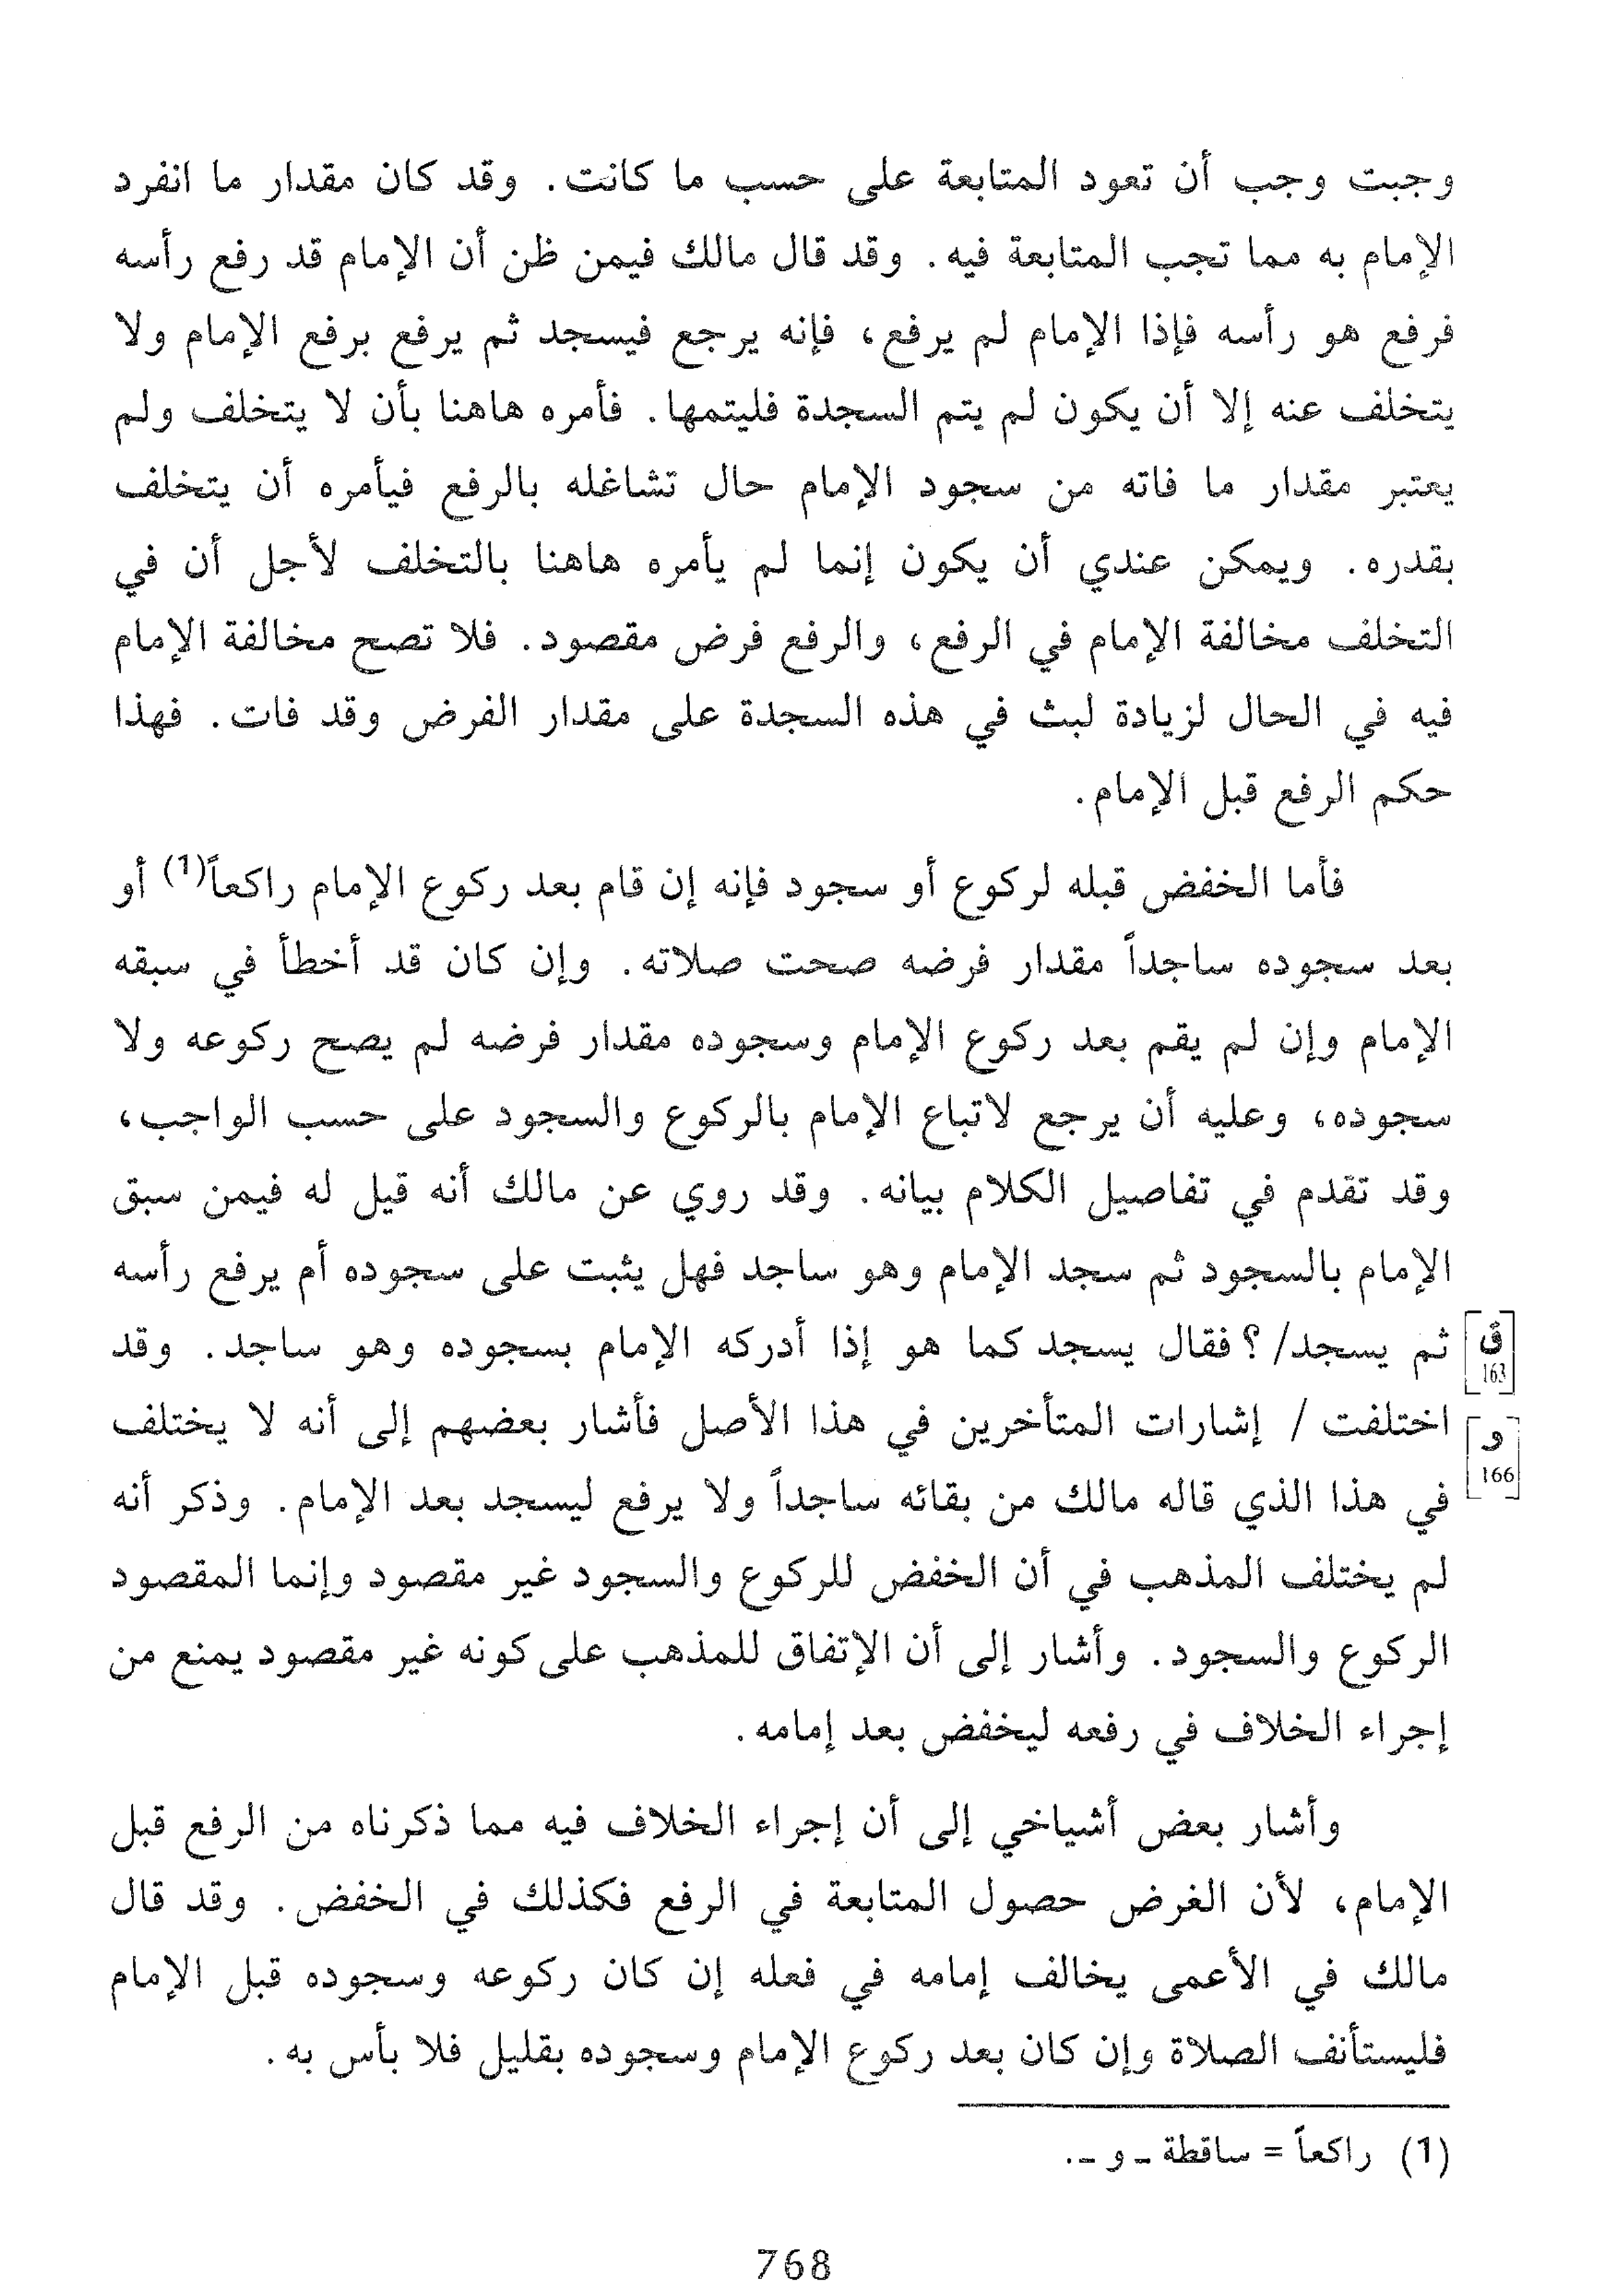 وجبت وجب أن تعود المتابعة على حسب ما كانت. وقد كان مقدار ما انفرد
الإمام به مما تجب المتابعة فيه. وقد قال مالك فيمن ظن أن الإمام قد رفع رأسه
فرفع هو رأسه فإذا الإمام لم يرفع، فإنه يرجع فيسجد ثم يرفع برفع الإمام ولا
يتخلف عنه إلا أن يكون لم يتم السجدة فليتمها. فأمره هاهنا بأن لا يتخلف ولم
يعتبر مقدار ما فاته من سجود الإمام حال تشاغله بالرفع فيأمره أن يتخلف
بقدره. ويمكن عندي أن يكون إنما لم يأمره هاهنا بالتخلف لأجل أن في
التخلف مخالفة الإمام في الرفع، والرفع فرض مقصود. فلا تصح مخالفة الإمام
فيه في الحال لزيادة لبث في هذه السجدة على مقدار الفرض وقد فات. فهذا
حكم الرفع قبل الإمام.
فأما الخفض قبله لركوع أو سجود فإنه إن قام بعد ركوع الإمام راكعاً(1) أو
بعد سجوده ساجداً مقدار فرضه صحت صلاته. وإن كان قد أخطأ في سبقه
الإمام وإن لم يقم بعد ركوع الإمام وسجوده مقدار فرضه لم يصح ركوعه ولا
سجوده، وعليه أن يرجع لاتباع الإمام بالركوع والسجود على حسب الواجب،
وقد تقدم في تفاصيل الكلام بيانه. وقد روي عن مالك أنه قيل له فيمن سبق
الإمام بالسجود ثم سجد الإمام وهو ساجد فهل يثبت على سجوده أم يرفع رأسه
ثم يسجد/ ؟ فقال يسجد كما هو إذا أدركه الإمام بسجوده وهو ساجد. وقد
[ق 163]
اختلفت / إشارات المتأخرين في هذا الأصل فأشار بعضهم إلى أنه لا يختلف
[و 166]
في هذا الذي قاله مالك من بقائه ساجداً ولا يرفع ليسجد بعد الإمام. وذكر أنه
لم يختلف المذهب في أن الخفض للركوع والسجود غير مقصود وإنما المقصود
الركوع والسجود. وأشار إلى أن الإتفاق للمذهب على كونه غير مقصود يمنع من
إجراء الخلاف في رفعه ليخفض بعد إمامه.
وأشار بعض أشياخي إلى أن إجراء الخلاف فيه مما ذكرناه من الرفع قبل
الإمام، لأن الغرض حصول المتابعة في الرفع فكذلك في الخفض. وقد قال
مالك في الأعمى يخالف إمامه في فعله إن كان ركوعه وسجوده قبل الإمام
فليستأنف الصلاة وإن كان بعد ركوع الإمام وسجوده بقليل فلا بأس به.
(1) راكعاً = ساقطة - و -.
768